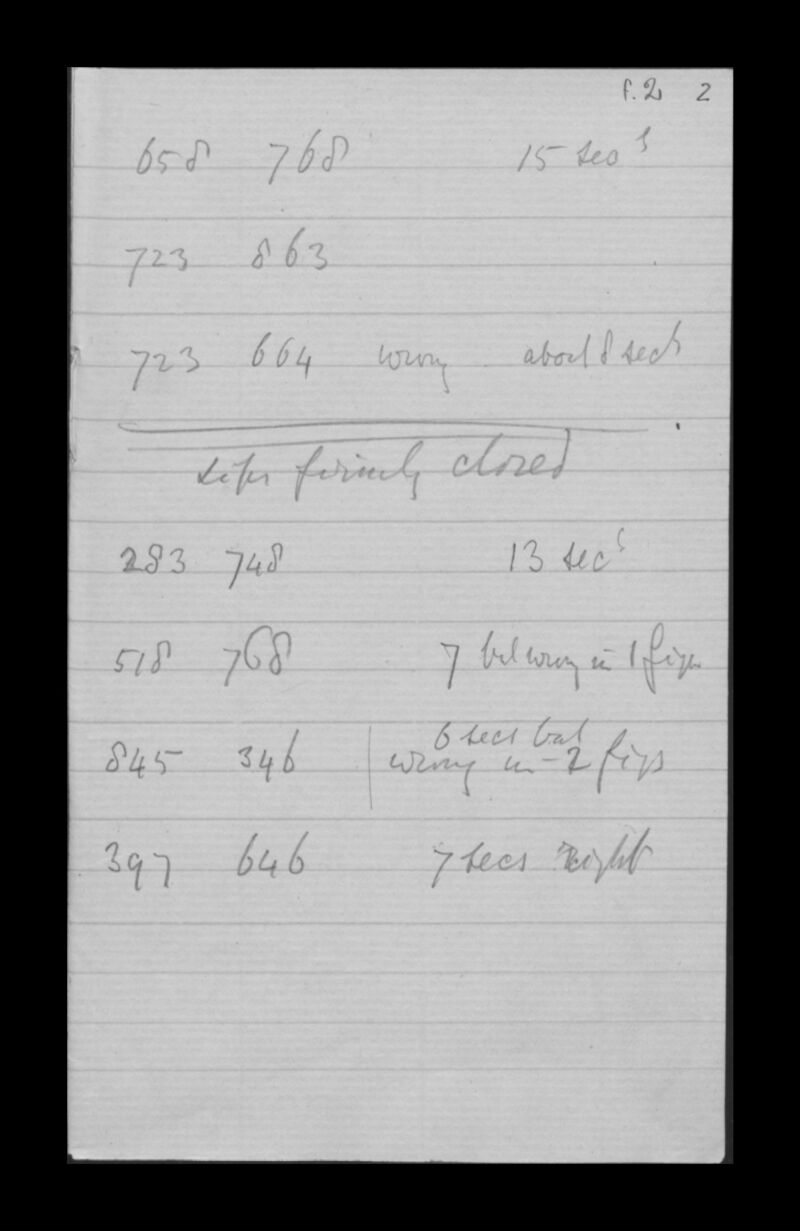 f.2 2
658 768 15 secs
723 863
723 664 wrong about 8 secs
lips firmly closed
283 748 13 secs
518 768 7 but wrong in 1 figure
845 346 6 secs but
wrong in 2 figs
397 646 7 secs right